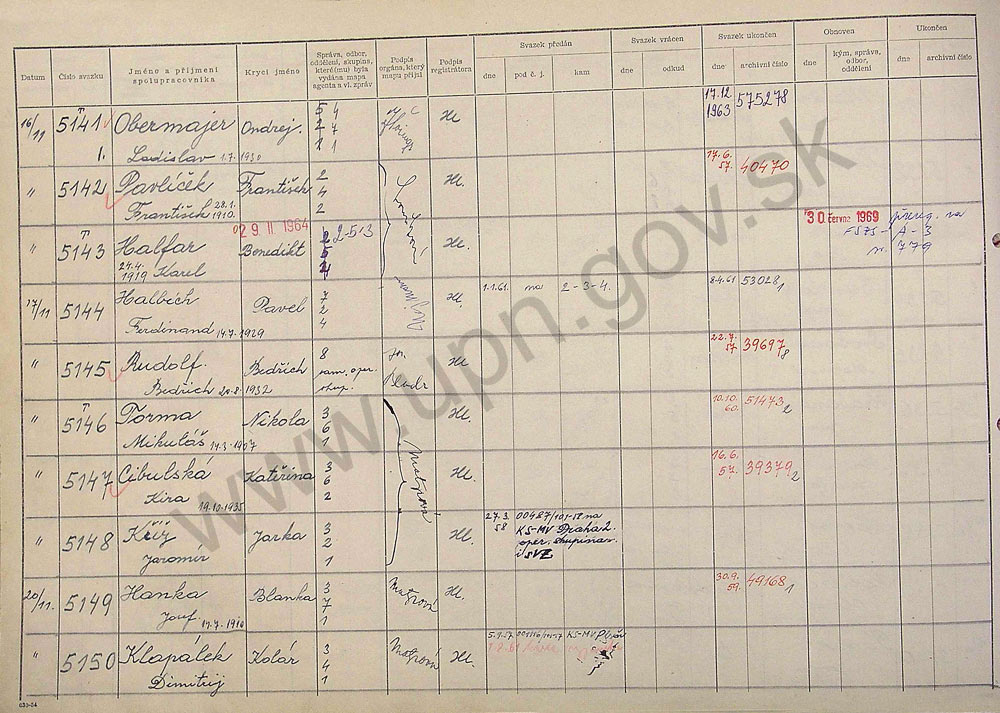 Datum
Číslo svazku
Jméno a příjmení
spolupracovníka
Krycí jméno
Správa, odbor,
oddělení, skupina,
které(mu) byla
vydána mapa
agenta a vl. zpráv
Podpis
orgána, který
mapu přijal
Podpis
registrátora
Svazek předán
dne
pod č. j.
kam
Svazek vrácen
dne
odkud
Svazek ukončen
dne
archivní číslo
Obnoven
dne
kým, správa,
odbor,
oddělení
Ukončen
dne
archivní číslo
16/11 T 5141 Obermajer Ondrej. 5 4 Hl. 17.12 1963 575278
1. Ladislav 1.7.1930 2 7
1 1
" 5142 Pavlíček František 2 Hl. 17.6. 57. 40470
František 28.1. 1910. 4
2
029 II 1964
" T 5143 Halfar Benedikt 2-5-3 Hl. 30. června 1969 přereg. na
24.4. 1919 Karel A-3
779
17/11 5144 Halbich Pavel 7 Hl. 1.1.61. na 2-3-4. 8.4.61 53028/1
Ferdinand 14.7.1929 2
4
" 5145 Rudolf. Bedřich 8 Hl. 22.7. 57 39697/8
Bedřich 1932 sam. oper.
skup.
" T 5146 Torma Nikola 3 Hl. 10.10. 60. 51473/2
Mikuláš 1907 6
1
" 5147 Cibulská Kateřina 3 Matprová Hl. 16.6. 57. 39379/2
Kira 19.10.1935 6
2
" 5148 Kříž Jarka 3 Hl. 27.3. 58 na
Jaromír 2 KS-MV Praha 2.
1 oper. skupina
20/11. 5149 Hanka Blanka 3 Matprová Hl. 30.9. 59. 49168/1
Josef 7
1
" 5150 Klapálek Kolár 3 Matprová Hl. KS-MV
Dimitrij 4
1
www.upn.gov.sk